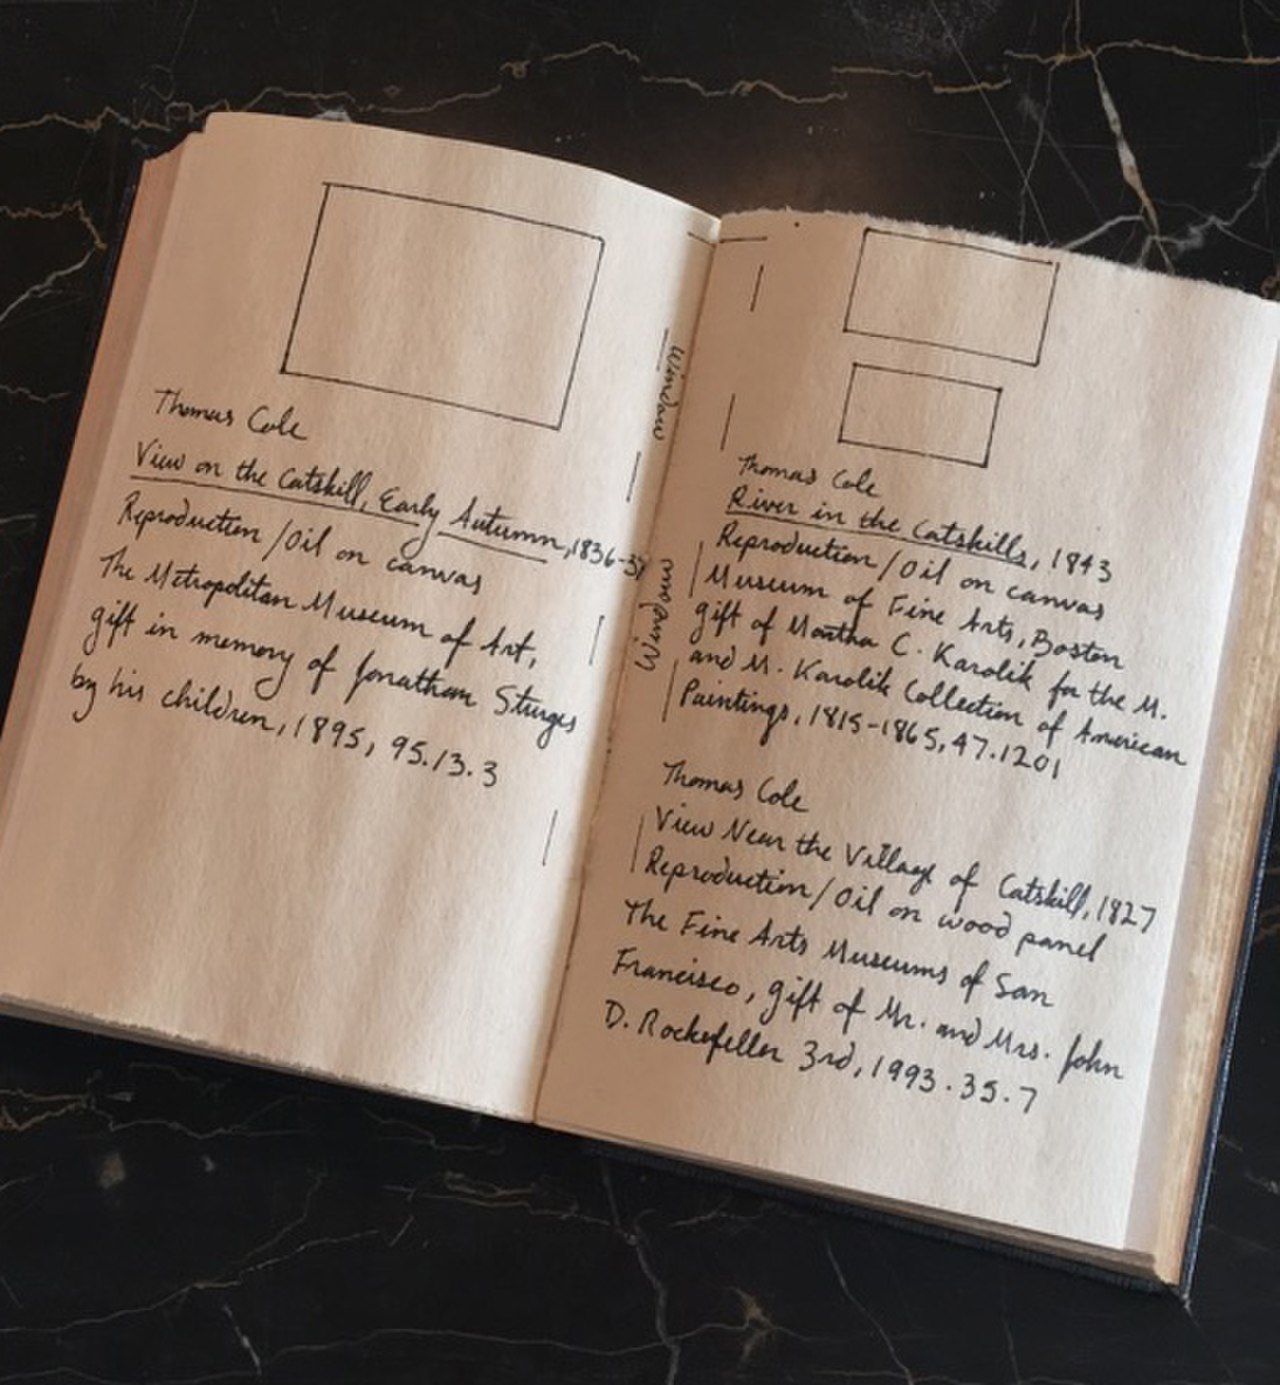 Thomas Cole
View on the Catskill, Early Autumn, 1836-37
Reproduction/Oil on canvas
The Metropolitan Museum of Art,
gift in memory of Jonathan Sturges
by his children, 1895, 95.13.3
Window
Window
Thomas Cole
River in the Catskills, 1843
Reproduction/Oil on canvas
Museum of Fine Arts, Boston
gift of Martha C. Karolik for the M.
and M. Karolik Collection of American
Paintings, 1815-1865, 47.1201
Thomas Cole
View Near the Village of Catskill, 1827
Reproduction/Oil on wood panel
The Fine Arts Museums of San
Francisco, gift of Mr. and Mrs. John
D. Rockefeller 3rd, 1993.35.7